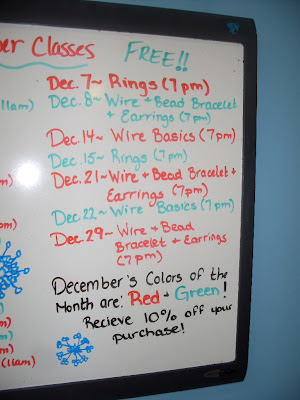 ber Classes FREE!!
Dec. 7~ Rings (7pm)
11am) Dec. 8~ Wire + Bead Bracelet
+ Earrings (7pm)
Dec. 14~ Wire Basics (7pm)
Dec. 15~ Rings (7pm)
m) Dec. 21~ Wire + Bead Bracelet +
Earrings (7pm)
pm) Dec. 22~ Wire Basics (7pm)
Dec. 29~ Wire + Bead
Bracelet + Earrings
(7pm)
December's Colors of the
Month are: Red + Green!
Recieve 10% off your
m) purchase!
m)
(11am)